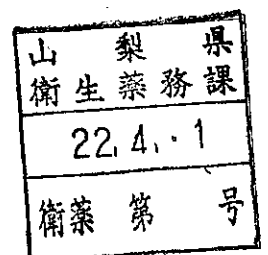 山梨県
衛生薬務課
22.4.-1
衛薬第 号